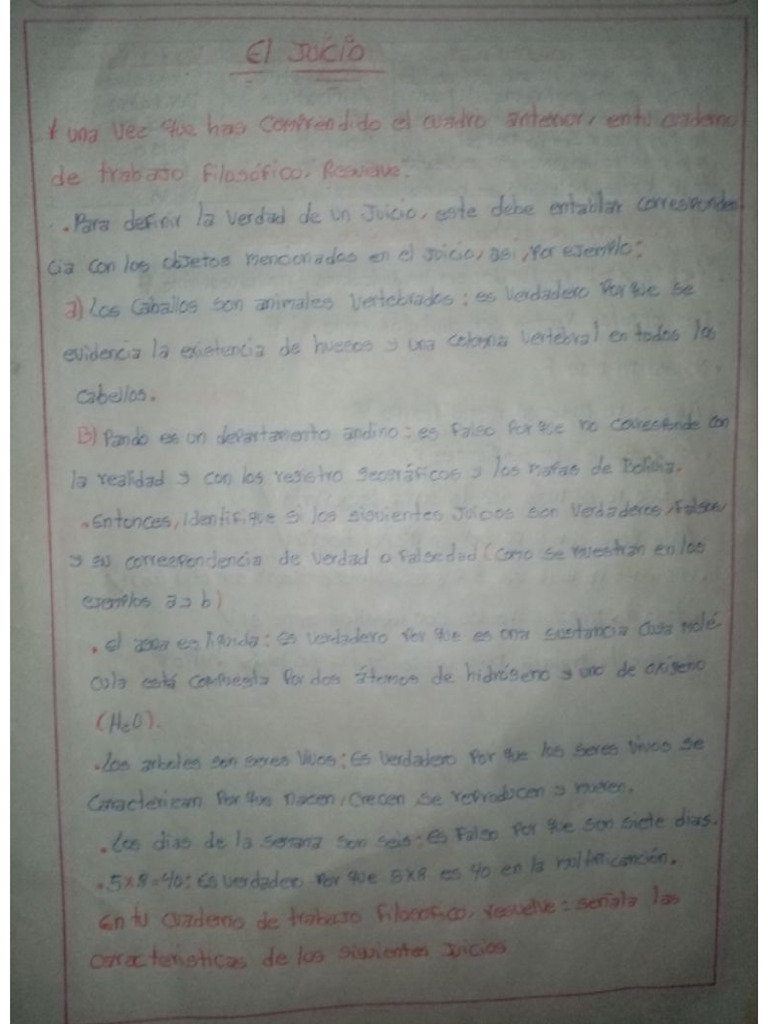 El Juicio
* una vez que has comprendido el cuadro anterior, en tu cuaderno
de trabajo filosófico, Resuelve:
. Para definir la verdad de un Juicio, este debe entablar corresponden
cia con los objetos mencionados en el juicio, asi, por ejemplo:
a) Los Caballos son animales vertebrados: es verdadero Por que se
evidencia la existencia de huesos y una columna vertebral en todos los
cabellos.
B) Pando es un departamento andino: es falso Por que no corresponde con
la realidad y con los registro geográficos y los mapas de Bolivia.
. Entonces, identifique si los siguientes Juicios son Verdaderos, Falsos,
y su correspondencia de verdad o Falsedad (como se muestran en los
ejemplos a y b)
. el agua es liquida: es verdadero Por que es una sustancia cuya molé
cula está compuesta Por dos átomos de hidrógeno y uno de oxigeno
(H2O).
. Los arboles son seres vivos: Es verdadero Por que los seres vivos se
Caracterican Por que nacen, crecen se reproducen y mueren.
. Los dias de la semana son seis: es Falso Por que son siete dias.
. 5x8=40: Es verdadero Por que 5x8 es 40 en la
En tu cuaderno de trabajo Filosofico, resuelve: señala las
caracteristicas de los siguientes Juicios